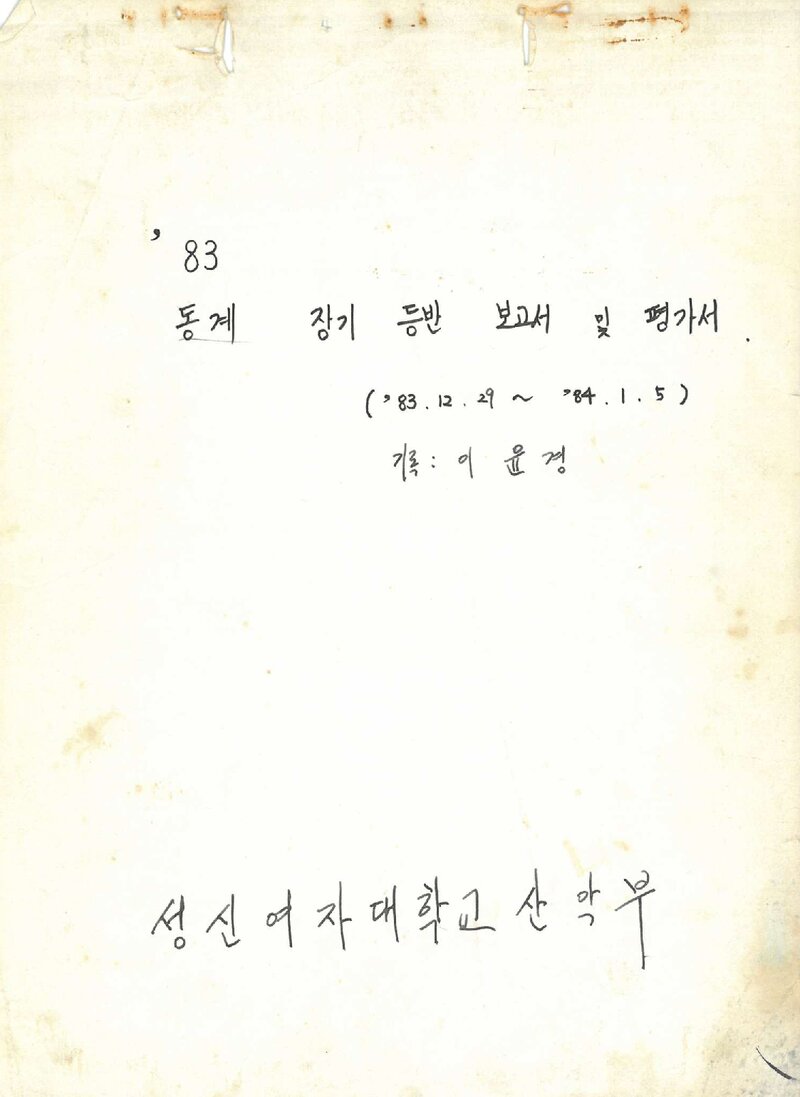 '83
동계 장기 등반 보고서 및 평가서.
('83.12.29 ~ '84.1.5)
기록: 이윤경
성신여자대학교산악부